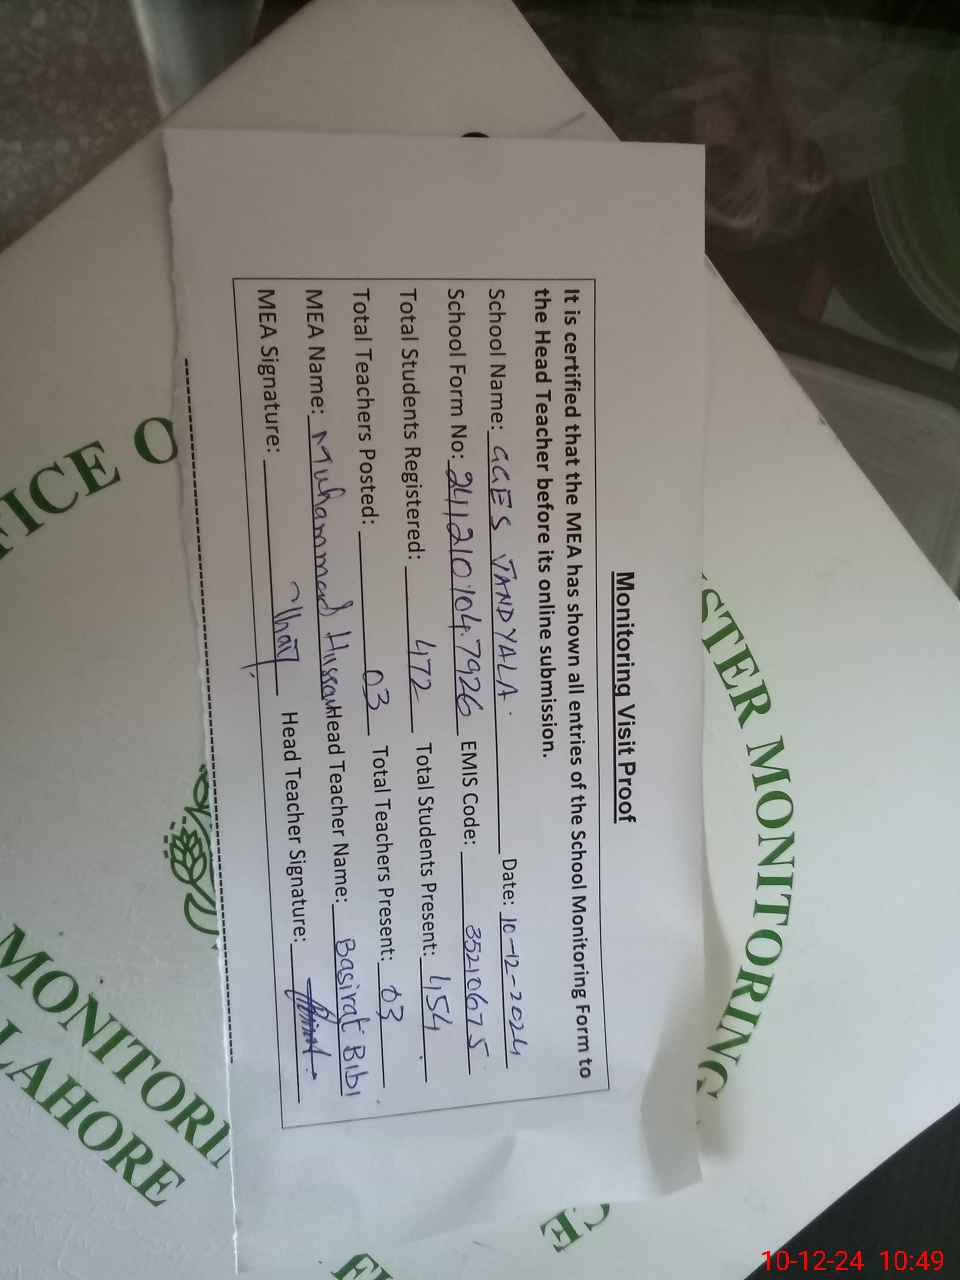 Monitoring Visit Proof
It is certified that the MEA has shown all entries of the School Monitoring Form to
the Head Teacher before its online submission.
School Name: GGES JANDYALA. Date: 10-12-2024
School Form No: 2412101047926 EMIS Code: 35210675
Total Students Registered: 472 Total Students Present: 454.
Total Teachers Posted: 03 Total Teachers Present: 03
MEA Name: Muhammad Hassan Head Teacher Name: Basirat Bibi
MEA Signature: Head Teacher Signature:
STER MONITORING
FICE O
MONITORI
LAHORE
10-12-24 10:49